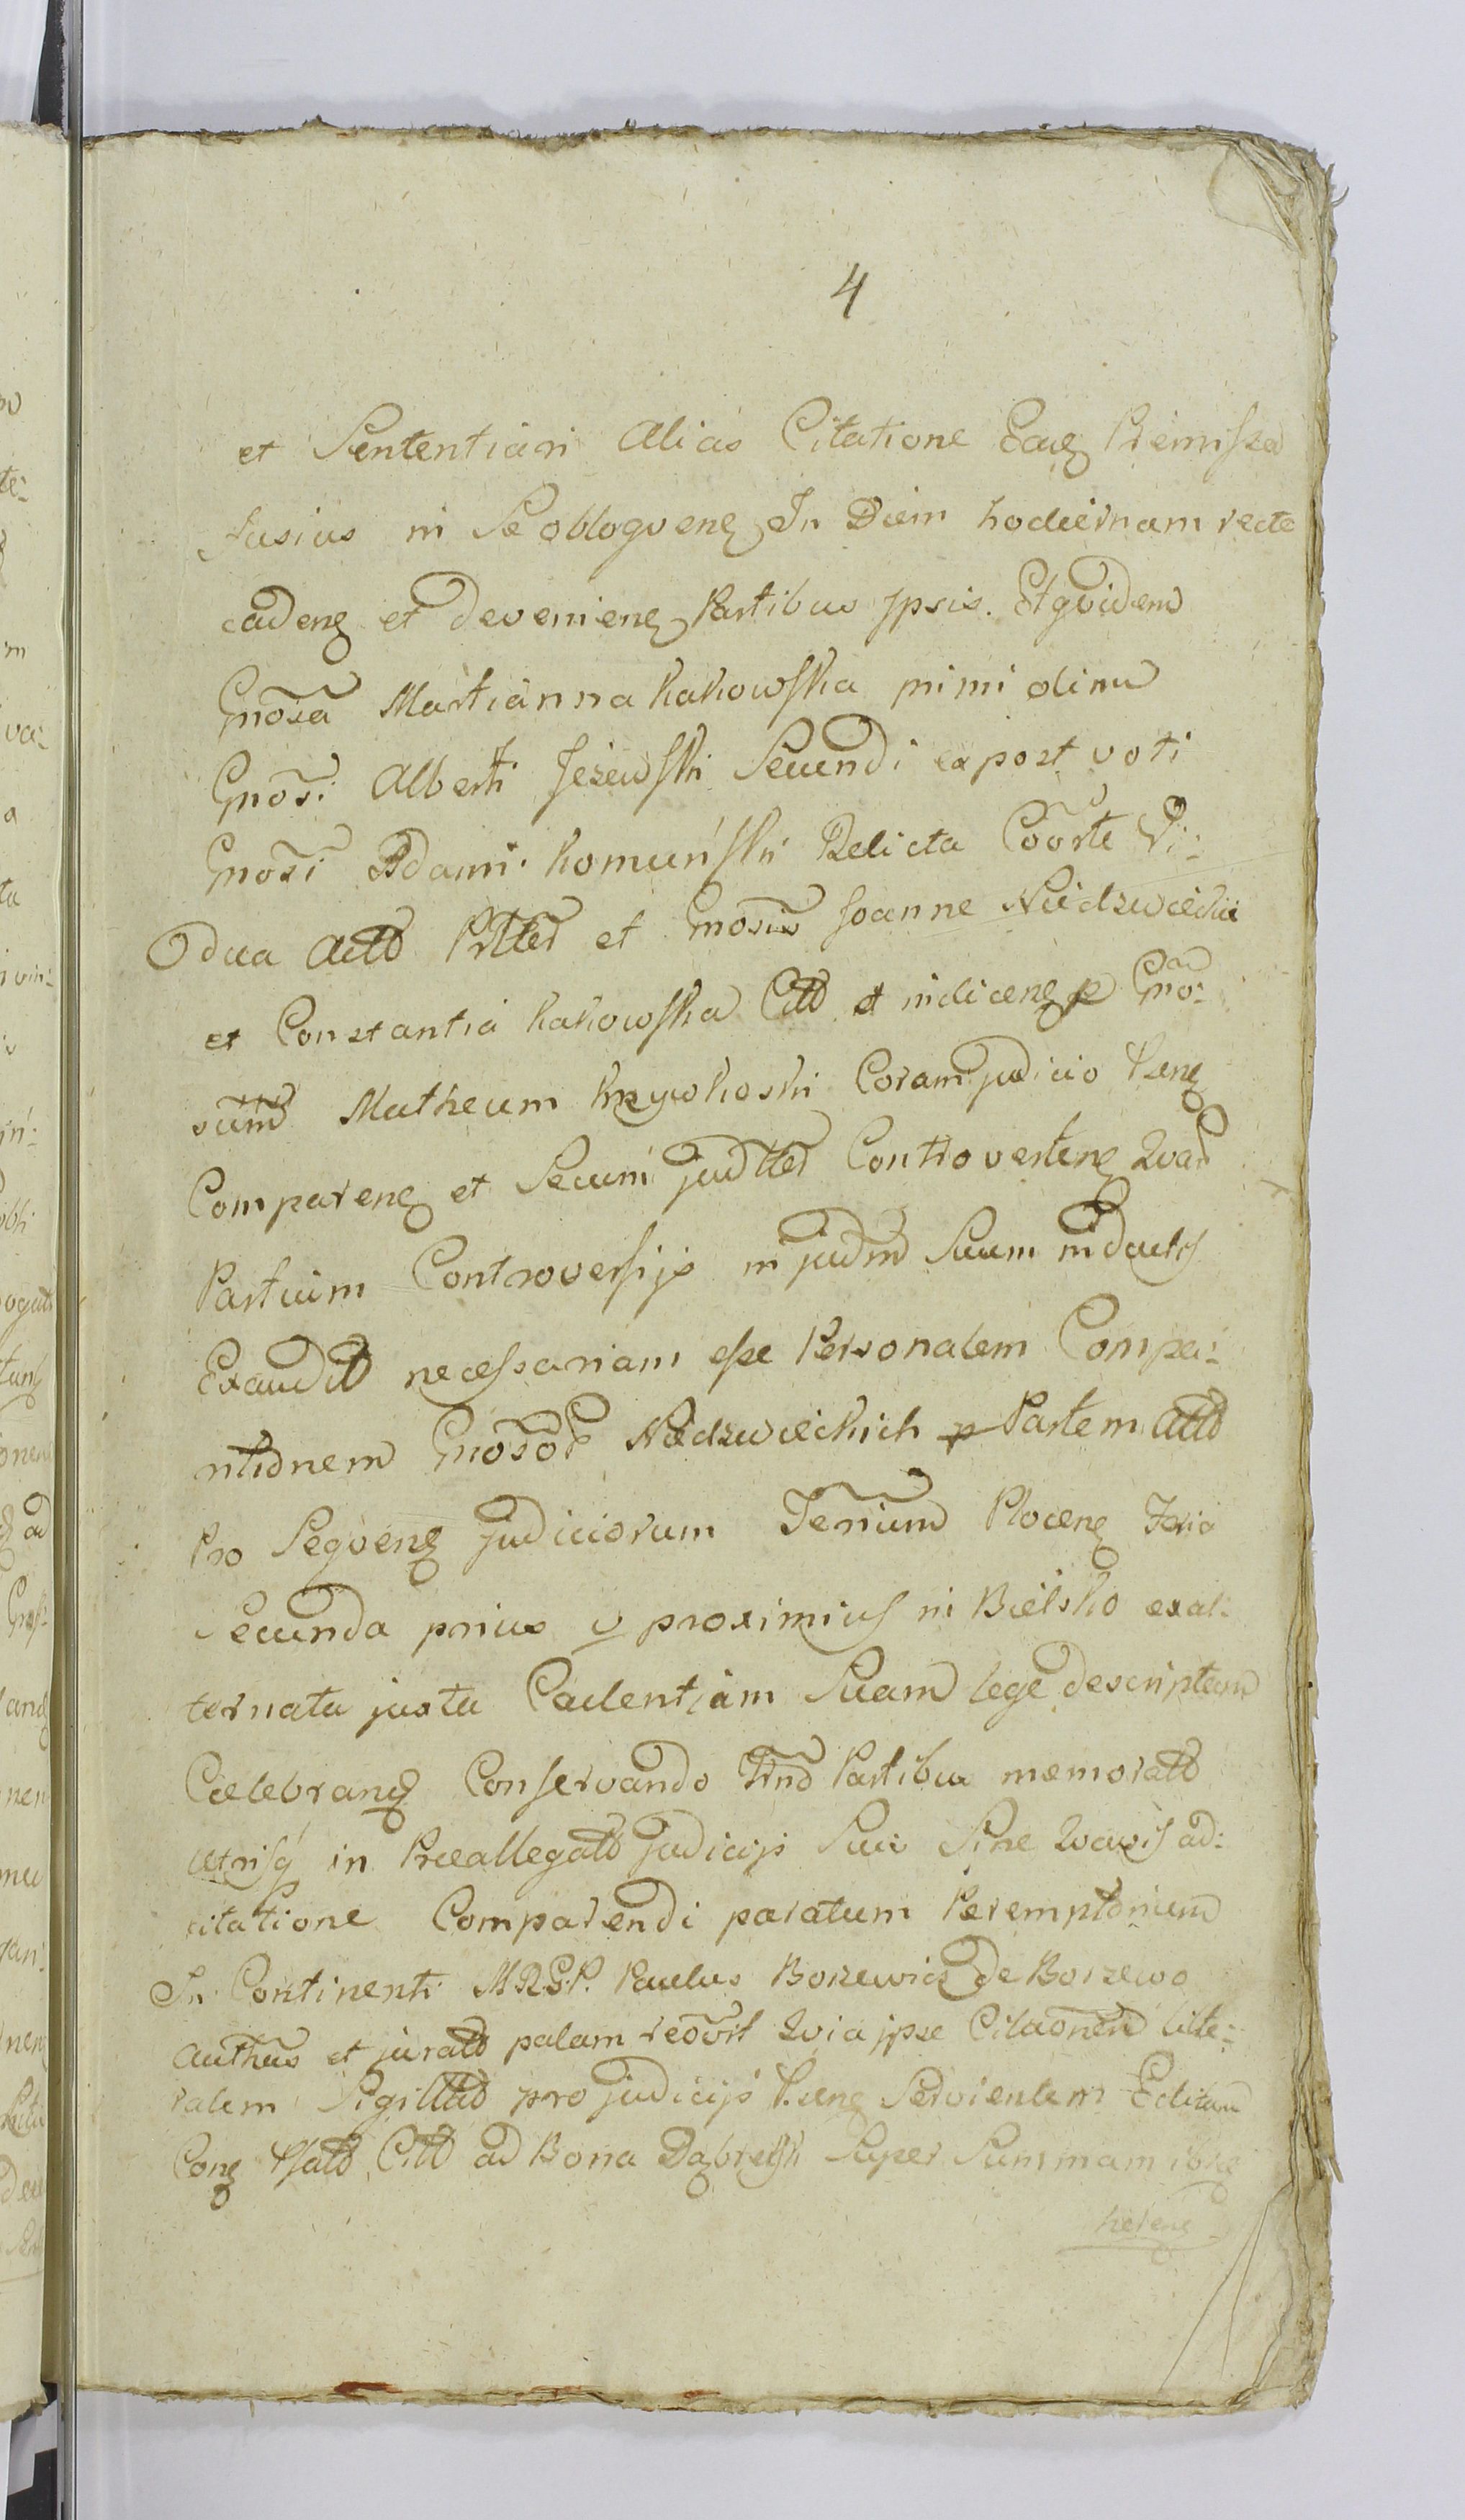 4
et Sententiari Alias Citatione Eaq Premissa
fusius in Se obloqvenꝫ In Diem hodiernam recte
cadenꝫ et Devenienꝫ Partibus Ipsis. Et qvidem
Gnosa Martianna Kakowska primi olim
Gnosi Alberti Jezewski Secundi ex post voti
Gnosi Adami Komunski Relicta Coorte Vi:
Odua Acto et Gnosis Joanne Niedzwiecki
et Constantia Kakowska Citt et indicenꝫ p Gno:
sum Matheum Krzywkoski Coram judicio
Comparenꝫ et Secum judtter Controvertenꝫ Quar
Partium Controversijs in judm Suum inductis
Exaudit necessariam esse Personalem Compa:
ritionem Gnosor Niedzwieckich p Partem Actt
Pro Seqvenꝫ judiciorum Terrium Plocenꝫ Feria
Secunda prius v proximius in Bielsko exal:
ternata juxta Cadentiam Suam lege descriptam
Caelebranꝫ Conservando Trnd Partibus memoratt
utrisq in Praeallegatt judicijs Suis Sine Quavis ad:
citatione Comparendi paratum Peremptorium
In Continenti M.R.G.P. Paulus Borzewicz de Borzewo
Authus et juratt palam recovit Qvia ipse Citaonem litte:
ralem Sigillatt pro judicijs Servientem Editam
Conꝫ Citt ad Bona Dąbrelsk Super Summam ibiq
herenꝫ